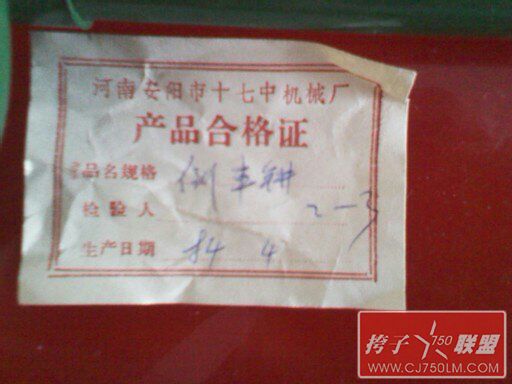 河南安阳市十七中机械厂
产品合格证
产品名规格 侧车斗
检验人 2-3
生产日期 84 4
挎子 750 联盟
WWW.CJ750LM.COM